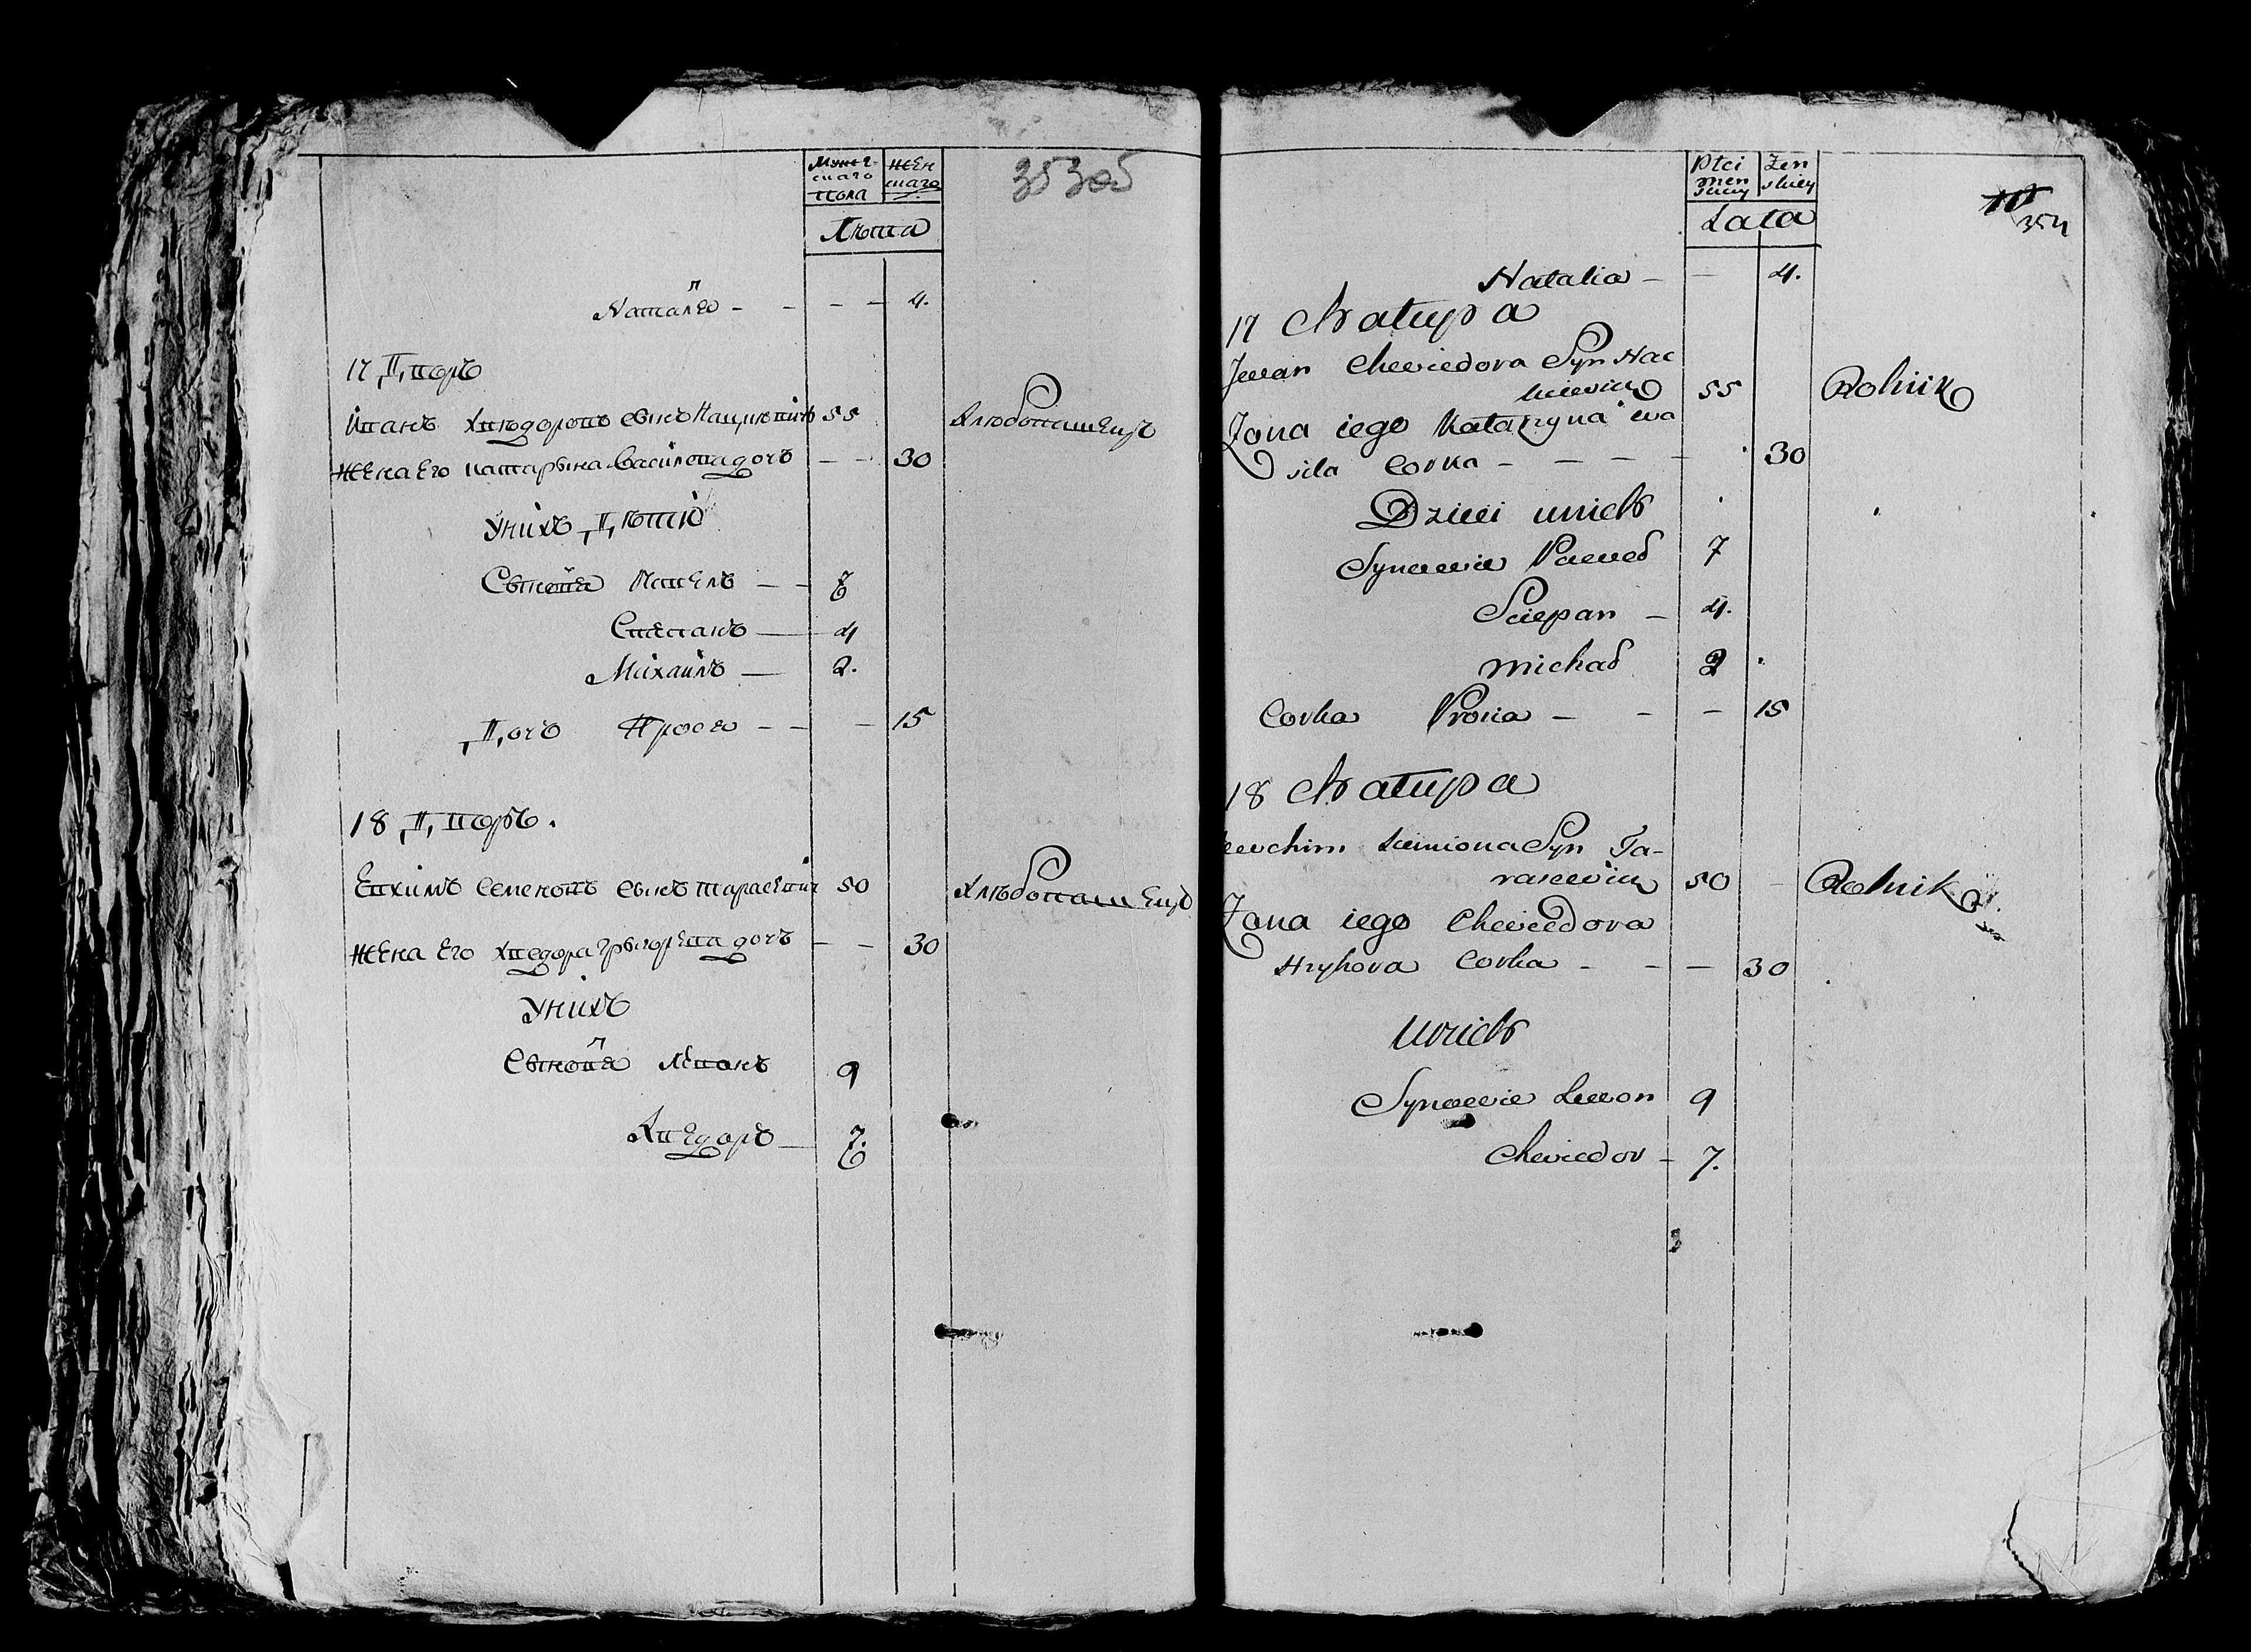 Мужескаго пола
Женскаго
Лѣта
353об
Наталя - - - - 4.
17 Дворъ
Иванъ Хвѣдоровъ сынъ Нацкѣвичъ 55 Хлѣбопашецъ
Жена Его катарына василева дочъ - - 30
Уних Дѣти
Сынов̾я Павелъ - - 7
Степанъ - 4
Михаилъ - 2.
Дочъ Прося - - - 15
18 Дворъ.
Евхимъ Семеновъ сынъ тарасевич 50 Хлѣбопашецъ
Жена Его хведора грыгорева дочъ - - 30
Уних
Сынов̾я Левонъ 9
Хведоръ - 7.
Płci męn skiey
Żen skiey
Lata
354
Natalia - - 4.
17 Chatupa
Jwan Chwiedora Syn Nac
kiewicz 55 Rolnik
Zona iego Katarzyna wa
sila Corka - - - - 30
Dzieci unich
Synowie Paweł 7
Sciepan - 4.
Michał 2
Corka Prosia - - - 15
18 Chatupa
Jewchim Siemiona Syn Ta-
rasewicz 50 - Rolnik
Zona iego Chwiedora
Hryhora Corka - - - 30
Unich
Synowie Lewon 9
Chwiedor - 7.